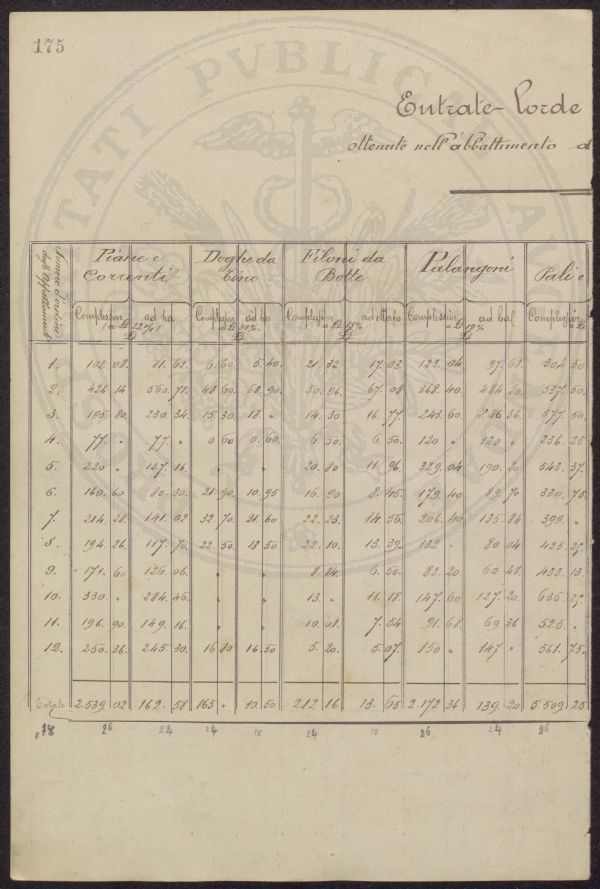 175
STATI PVBLICVM
Entrate-Lorde
ottenute nell'abbattimento d
Numero d'ordine degli Appezzamenti | Piane e Correnti | Doghe da Tino | Filoni da Botte | Palangoni | Pali e
Complessive | ad ha | Complessive | ad ha | Complessive | ad ettaro | Complessive | ad ha | Complessive
1. | 102 08. | 81. 62. | 6. 60. | 5. 40. | 21. 32. | 17. 03. | 122. 04 | 97. 68. | 304 50
2. | 426 14 | 560. 72. | 48 60. | 63. 90. | 50. 96. | 67. 08 | 368. 40. | 484 20. | 337. 50.
3. | 195. 80. | 230. 34. | 15. 30. | 18 " | 14. 30 | 16. 77. | 243. 60 | 286 36. | 577. 50.
4. | 77. " | 77. " | 0 60 | 0. 60. | 6 50. | 6. 50. | 120 " | 120 " | 236. 25
5. | 220 " | 127. 16. | " | " | 20. 80 | 11. 96. | 329. 04 | 190. 20 | 543. 37.
6. | 160. 60 | 80. 30. | 21. 90. | 10. 95 | 16. 90 | 8. 45. | 179. 40 | 89. 70 | 330. 75
7. | 214. 28. | 141. 02 | 32. 70. | 21. 60 | 22. 23. | 14. 56. | 206. 40 | 135. 84 | 399. "
8. | 194. 26. | 117. 70. | 22. 50. | 13 50 | 22. 10. | 13. 39. | 132 " | 80 04 | 425. 25.
9. | 171. 60 | 126. 06. | " | " | 8. 84. | 6. 50. | 82. 20. | 60. 48. | 433. 13.
10. | 330. " | 284. 46. | " | " | 13. " | 11. 18 | 147. 60 | 127. 20. | 636. 25.
11. | 196. 90. | 149. 16. | " | " | 10. 08. | 7. 54 | 91. 68. | 69. 36 | 526. "
12. | 250. 36. | 245. 30. | 16 80 | 16. 50 | 5. 20. | 5. 07. | 150 " | 147 " | 561. 75.
Totale | 2.539. 02 | 162. 58 | 165. " | 10. 50 | 212 16 | 13. 65 | 2.172 36 | 139. 20 | 5.509. 25
18 26 24 24 18 24 18 26 24 26